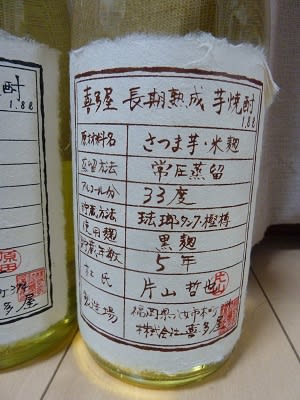 喜多屋 長期熟成 芋焼酎
1.8ℓ
原材料名 さつま芋・米麹
蒸留方法 常圧蒸留
アルコール分 33度
貯蔵方法 琺瑯タンク・樫樽
使用麹 黒麹
貯蔵年数 5年
杜氏 片山哲也
片山
製造場 福岡県八女市本町
株式会社喜多屋
酎
1.8ℓ
原田
多屋